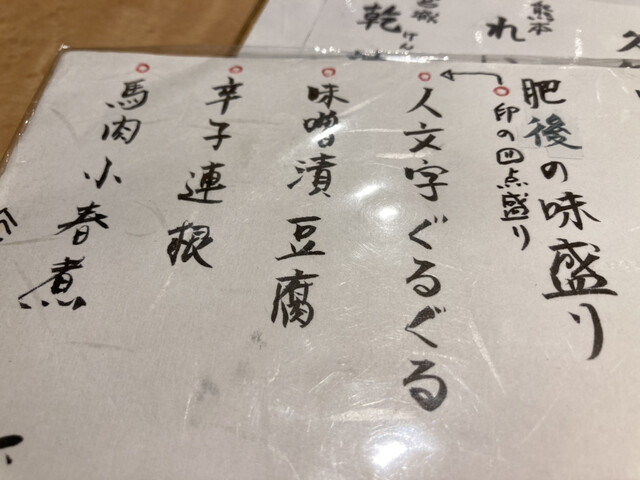 肥後の味盛り
○印の四点盛り
人文字ぐるぐる
味噌漬豆腐
辛子連根
馬肉小春煮
熊本
れ
乾